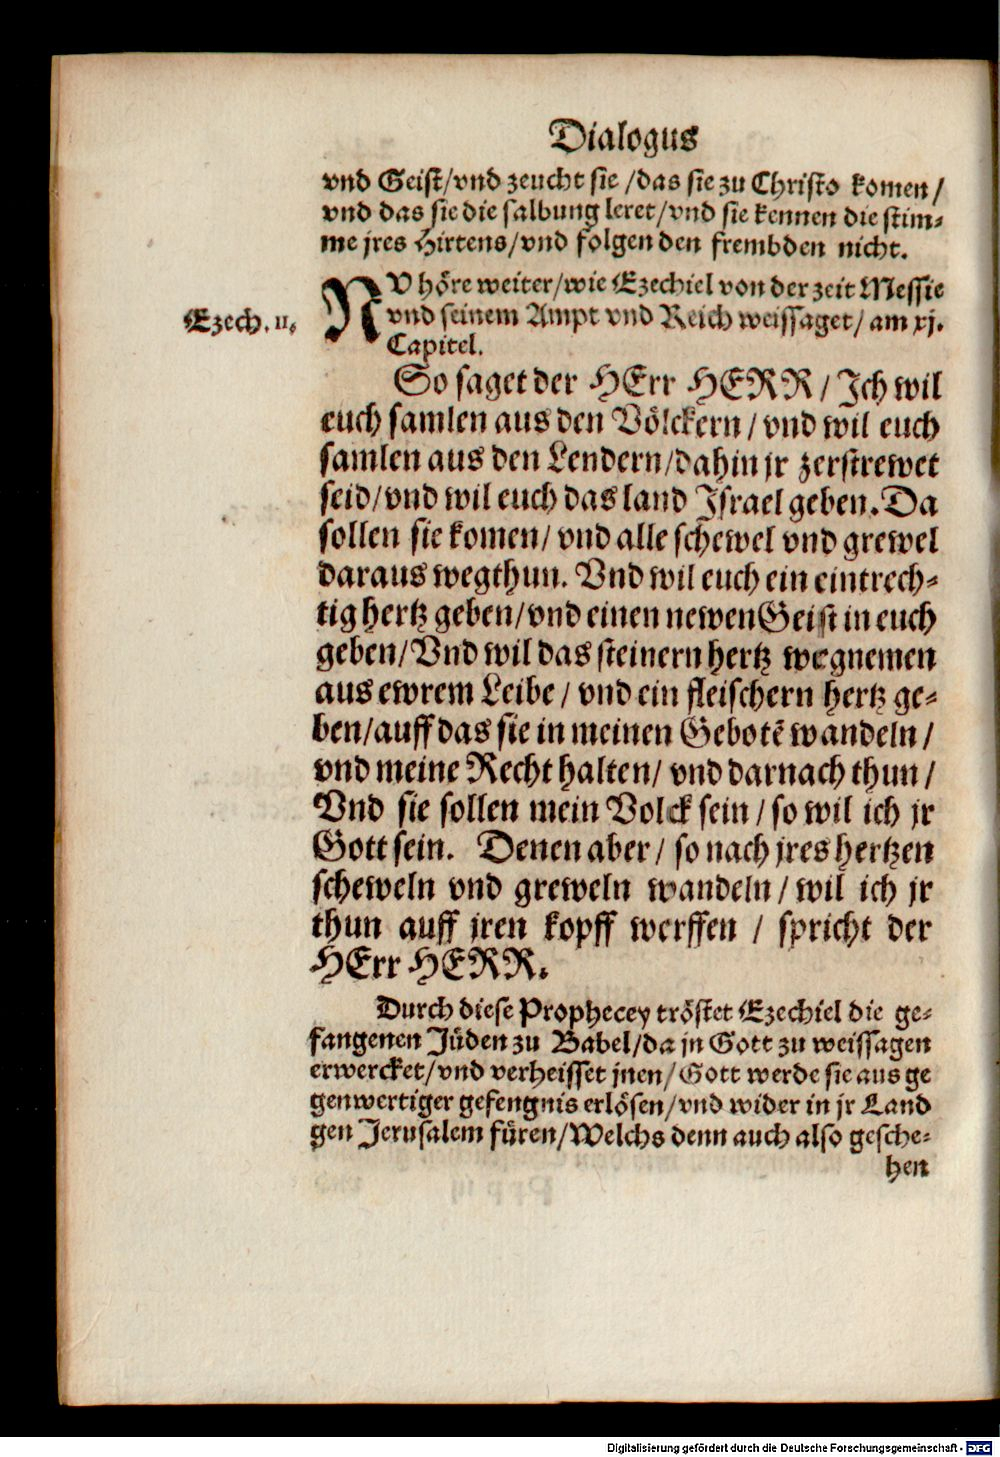 Dialogus
vnd Geist/vnd zeucht sie /das sie zu Christo komen/
vnd das sie die salbung leret/vnd sie kennen die stim-
me jres Hirtens/vnd folgen den frembden nicht.
NV höre weiter/wie Ezechiel von der zeit Messie
Ezech. 11.
vnd seinem Ampt vnd Reich weissaget/ am xj.
Capitel.
So saget der HErr HERR / Ich wil
euch samlen aus den Völckern / vnd wil euch
samlen aus den Lendern/dahin jr zerstrewet
seid/vnd wil euch das land Israel geben. Da
sollen sie komen/ vnd alle schewel vnd grewel
daraus wegthun. Vnd wil euch ein eintrech-
tig hertz geben/vnd einen newen Geist in euch
geben/Vnd wil das steinern hertz wegnemen
aus ewrem Leibe / vnd ein fleischern hertz ge-
ben/auff das sie in meinen Gebotē wandeln /
vnd meine Recht halten/ vnd darnach thun /
Vnd sie sollen mein Volck sein / so wil ich jr
Gott sein. Denen aber / so nach jres hertzen
scheweln vnd greweln wandeln / wil ich jr
thun auff jren kopff werffen / spricht der
HErr HERR.
Durch diese Prophecey tröstet Ezechiel die ge-
fangenen Jüden zu Babel/da jn Gott zu weissagen
erwercket/vnd verheisset jnen/Gott werde sie aus ge
genwertiger gefengnis erlösen/vnd wider in jr Land
gen Jerusalem füren/Welchs denn auch also gesche-
hen
Digitalisierung gefördert durch die Deutsche Forschungsgemeinschaft - DFG